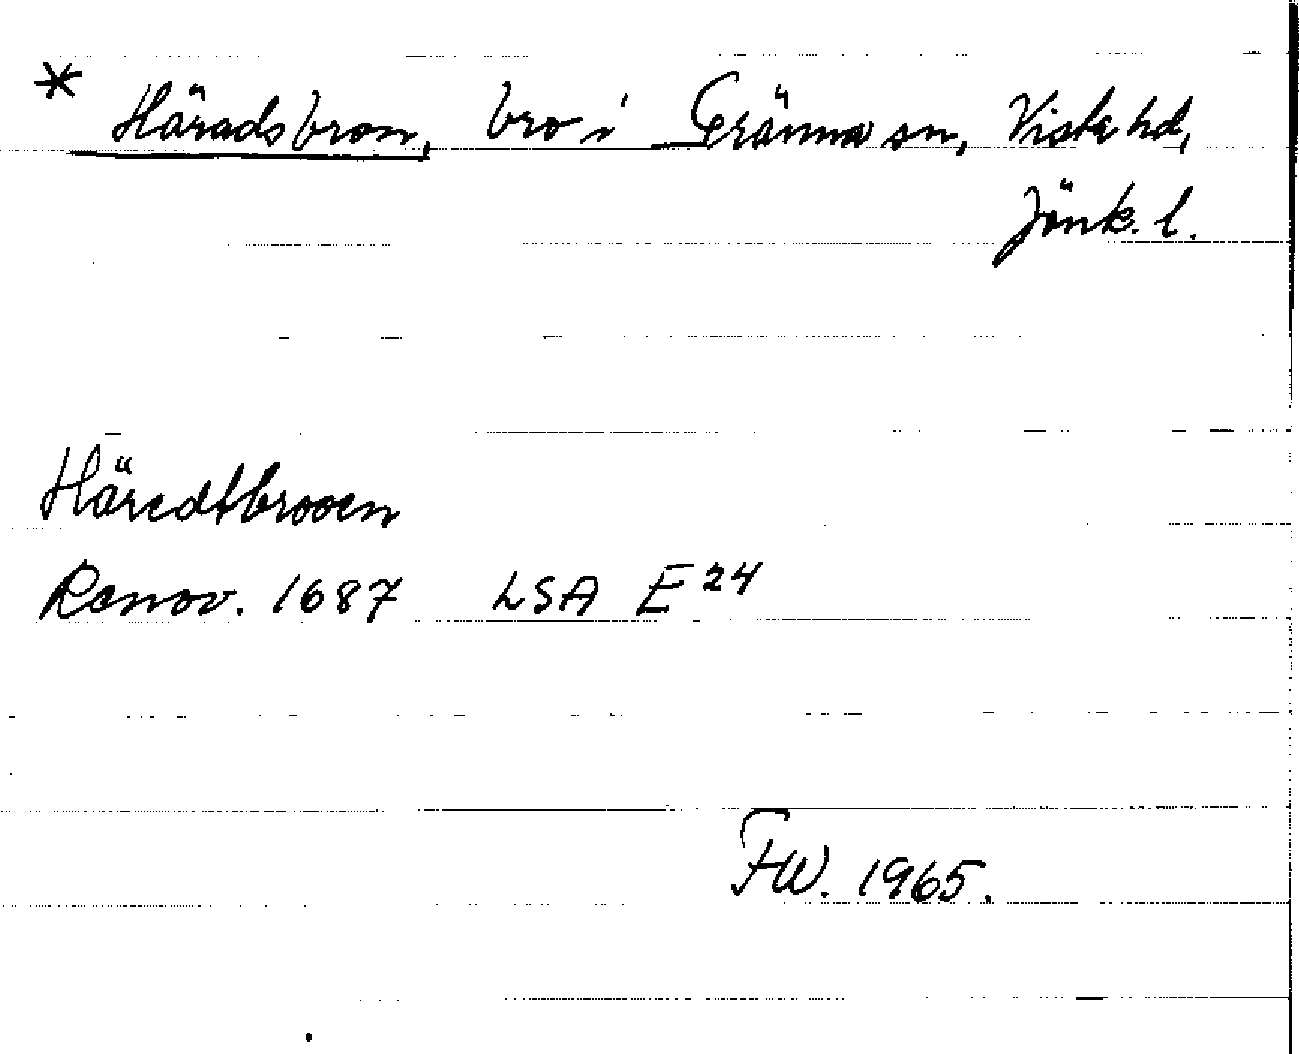 * Häradsbron, bro i Gränna sn, Vista hd,
Jönk. l.
Häredtbrooen
Renov. 1687 LSA E 24
FW. 1965.